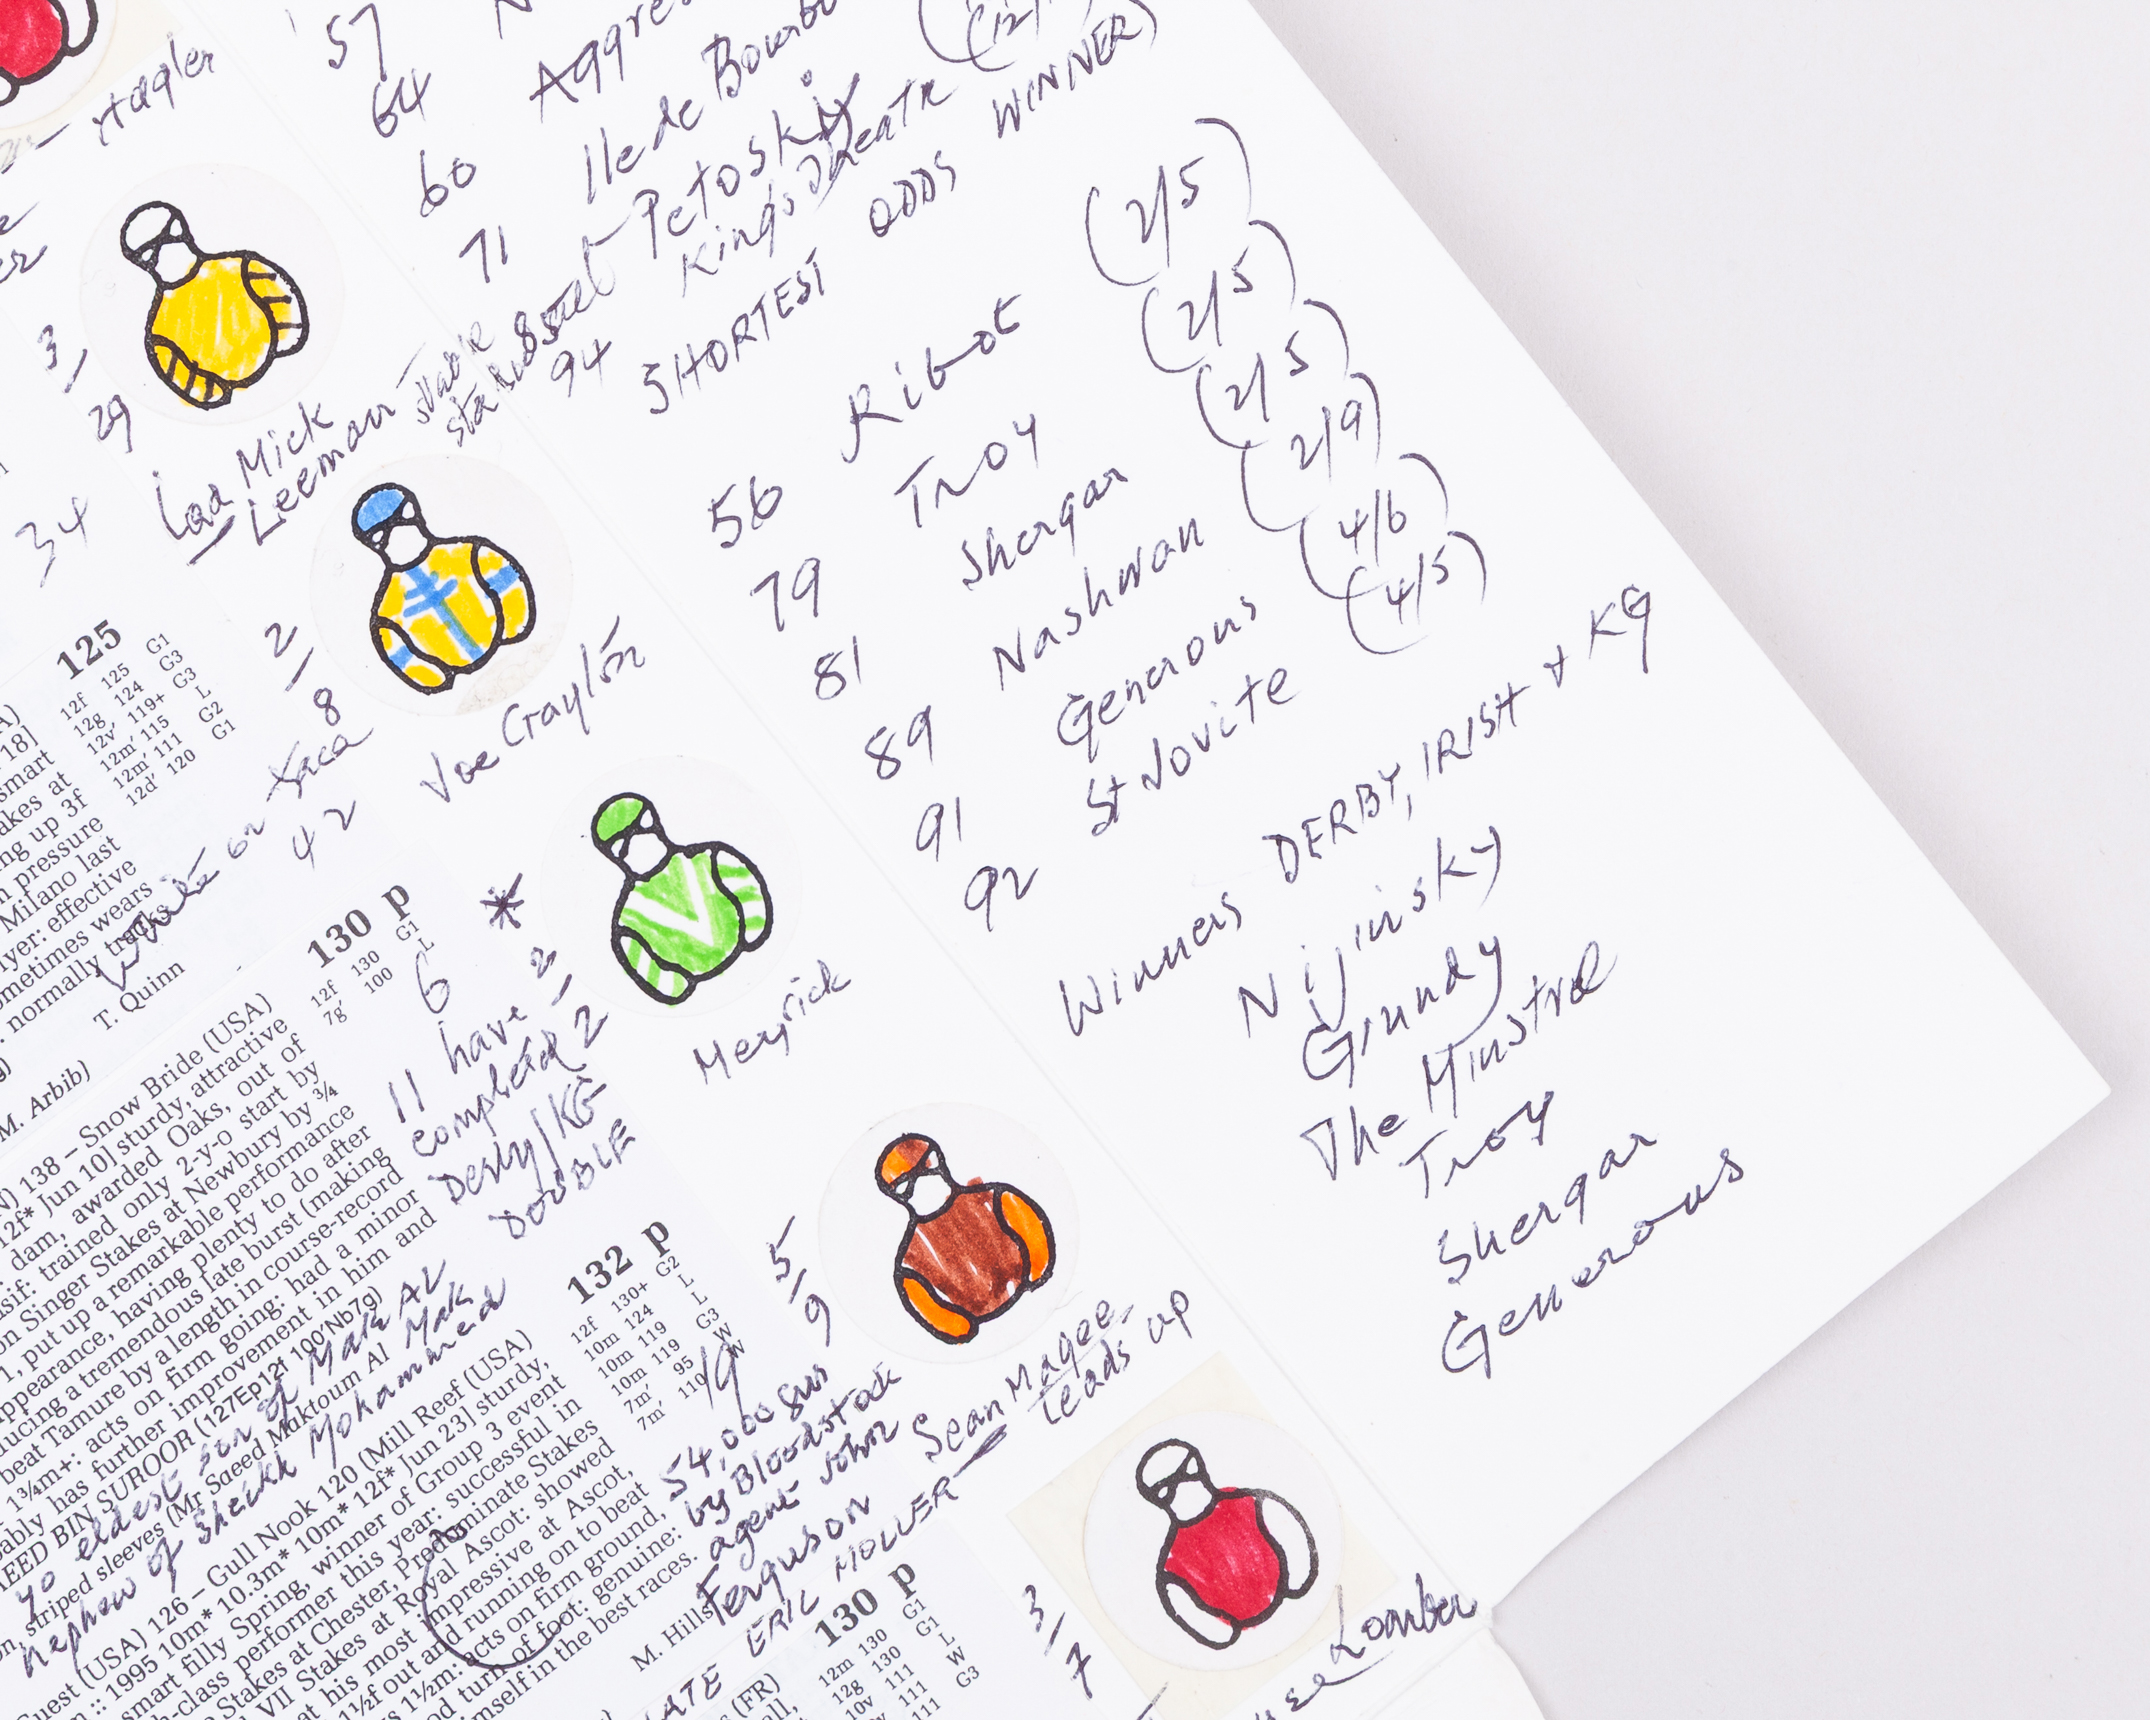 Hagler
57
64
60
71
94
Ilede Bourbo
Petoski
King's Theatre
SHORTEST ODDS WINNER)
56 Ribot (2/5)
79 Troy (2/5)
81 Shergar (2/5)
89 Nashwan (2/9)
91 Generous (4/6)
92 St Jovite (4/5)
Winners DERBY, IRISH & KG
Nijinsky
Grundy
The Minstrel
Troy
Shergar
Generous
3
29
34
Mick
Leeman
2
8
42
Joe Graylon
*
2
2
Meyrick
6
11 have
completed
Derby/KG
DOUBLE
5
9
19
Sean Magee
leads up
54,000 gns
by Bloodstock
agent John
Ferguson
ERIC MOLLER
3
7
yo eldest son of Mak Al
nephew of Sheikh Mohammed
125
12f 125 G1
12g 124 G3
12v' 119+ G3
12m' 115 L
12m' 111 G2
12d' 120 G1
18]
smart
akes at
ng up 3f
n pressure
Milano last
yer: effective
ometimes wears
normally tracks
T. Quinn
M. Arbib)
130 p
12f 130 G1
7g' 100 L
138 – Snow Bride (USA)
12f* Jun 10] sturdy, attractive
dam, awarded Oaks, out of
sif: trained only 2-y-o start by
on Singer Stakes at Newbury by ¾
1, put up a remarkable performance
appearance, having plenty to do after
ducing a tremendous late burst (making
beat Tamure by a length in course-record
1¾m+: acts on firm going: had a minor
ably has further improvement in him and
EED BIN SUROOR (127Ep12f 100'Nb7g)
striped sleeves (Mr Saeed Maktoum Al Maktoum
132 p
12f 130+ G2
10m 124 L
10m 119 L
10m 119 G3
7m' 95 W
7m' 110 W
Guest (USA) 126 – Gull Nook 120 (Mill Reef (USA)
:: 1995 10m* 10.3m* 10m* 12f* Jun 23] sturdy,
smart filly Spring, winner of Group 3 event
h-class performer this year: successful in
Stakes at Chester, Predominate Stakes
VII Stakes at Royal Ascot: showed
at his most impressive at Ascot,
1½f out and running on to beat
s 1½m: acts on firm ground,
d turn of foot: genuine:
imself in the best races.
M. Hills
130 p
12m 130 G1
12g 130 G1
10v 111 L
111 W
111 G3
(FR)
Lomber